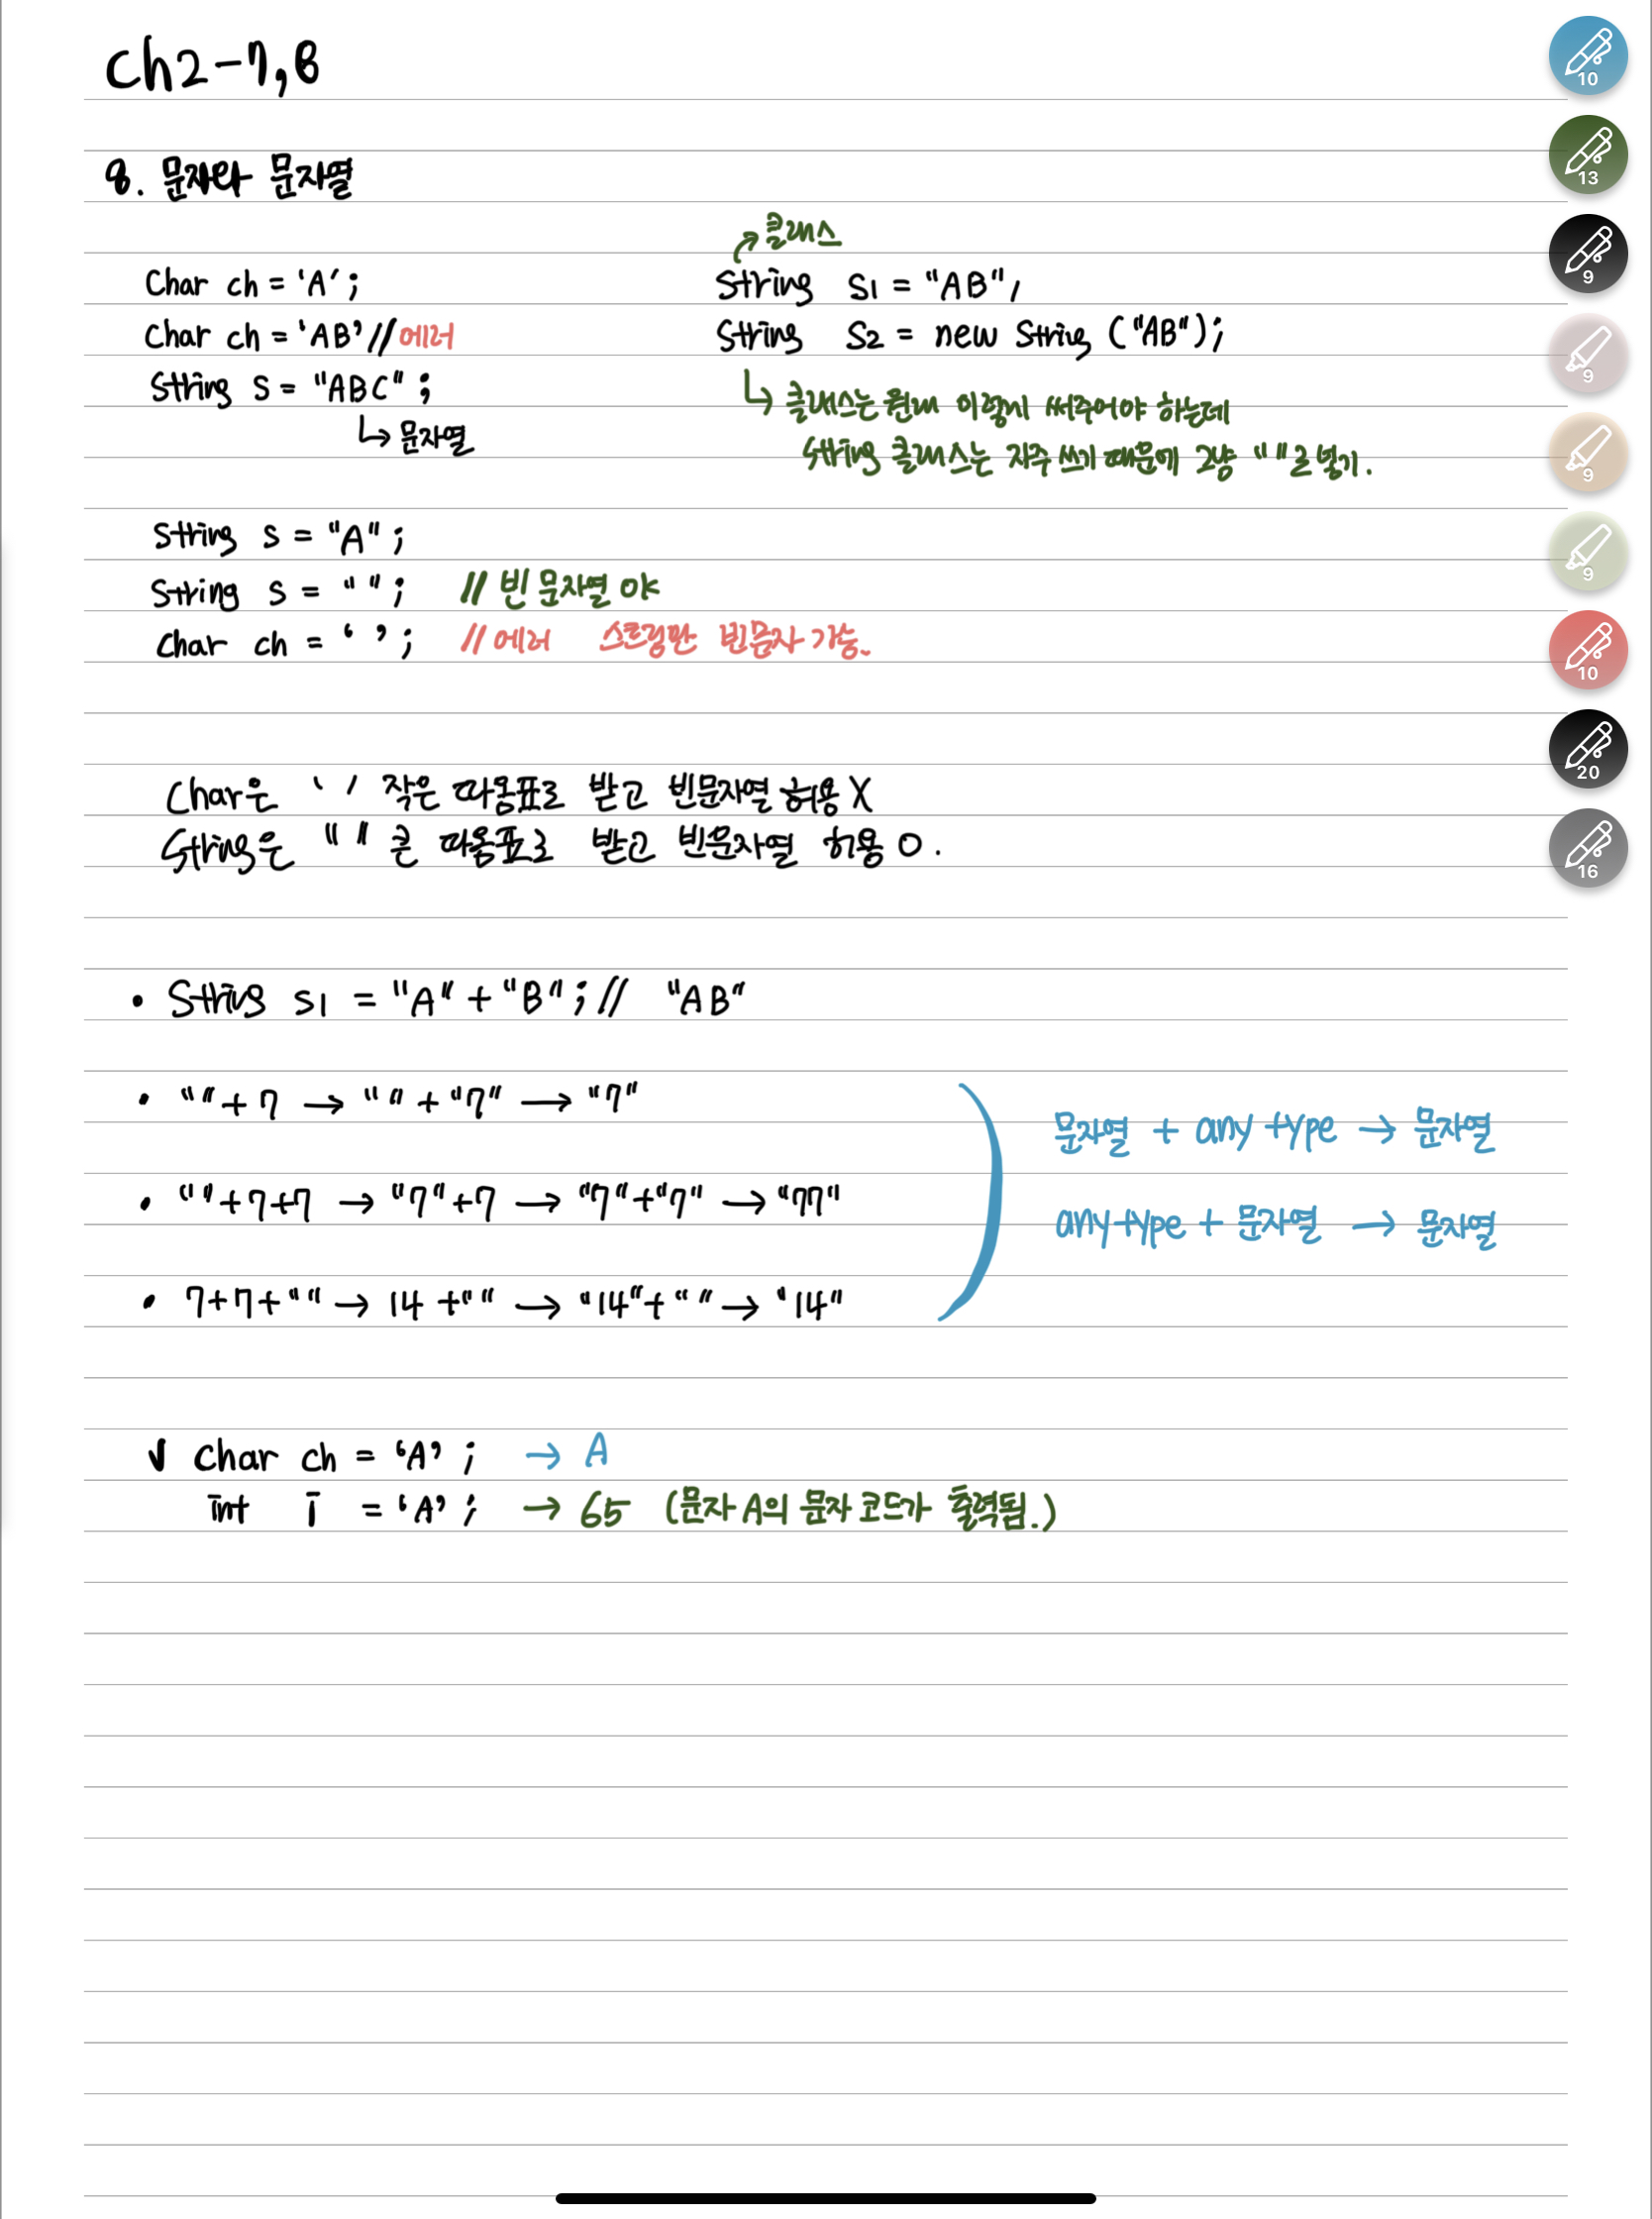 Ch2-7,8
8. 문자와 문자열
Char ch = 'A';
Char ch = 'AB' // 에러
String S = "ABC";
↳ 문자열
↗ 클래스
String S1 = "AB",
String S2 = new String ("AB");
↳ 클래스는 원래 이렇게 써주어야 하는데
String 클래스는 자주 쓰기 때문에 그냥 " "로 넣기.
String S = "A";
String S = " "; // 빈 문자열 야
Char ch = ' '; // 에러 스트링만 빈문자 가능.
Char은 ' ' 작은 따옴표로 받고 빈문자열 허용 X
String은 " " 큰 따옴표로 받고 빈문자열 허용 O.
• String S1 = "A" + "B"; // "AB"
• "" + 7 → "" + "7" → "7"
• "" + 7+7 → "7"+7 → "7"+"7" → "77"
• 7+7+"" → 14 + "" → "14"+"" → "14"
문자열 + any type → 문자열
any type + 문자열 → 문자열
✓ Char ch = 'A'; → A
int i = 'A'; → 65 (문자 A의 문자 코드가 출력됨.)
10
13
9
9
9
9
10
20
16